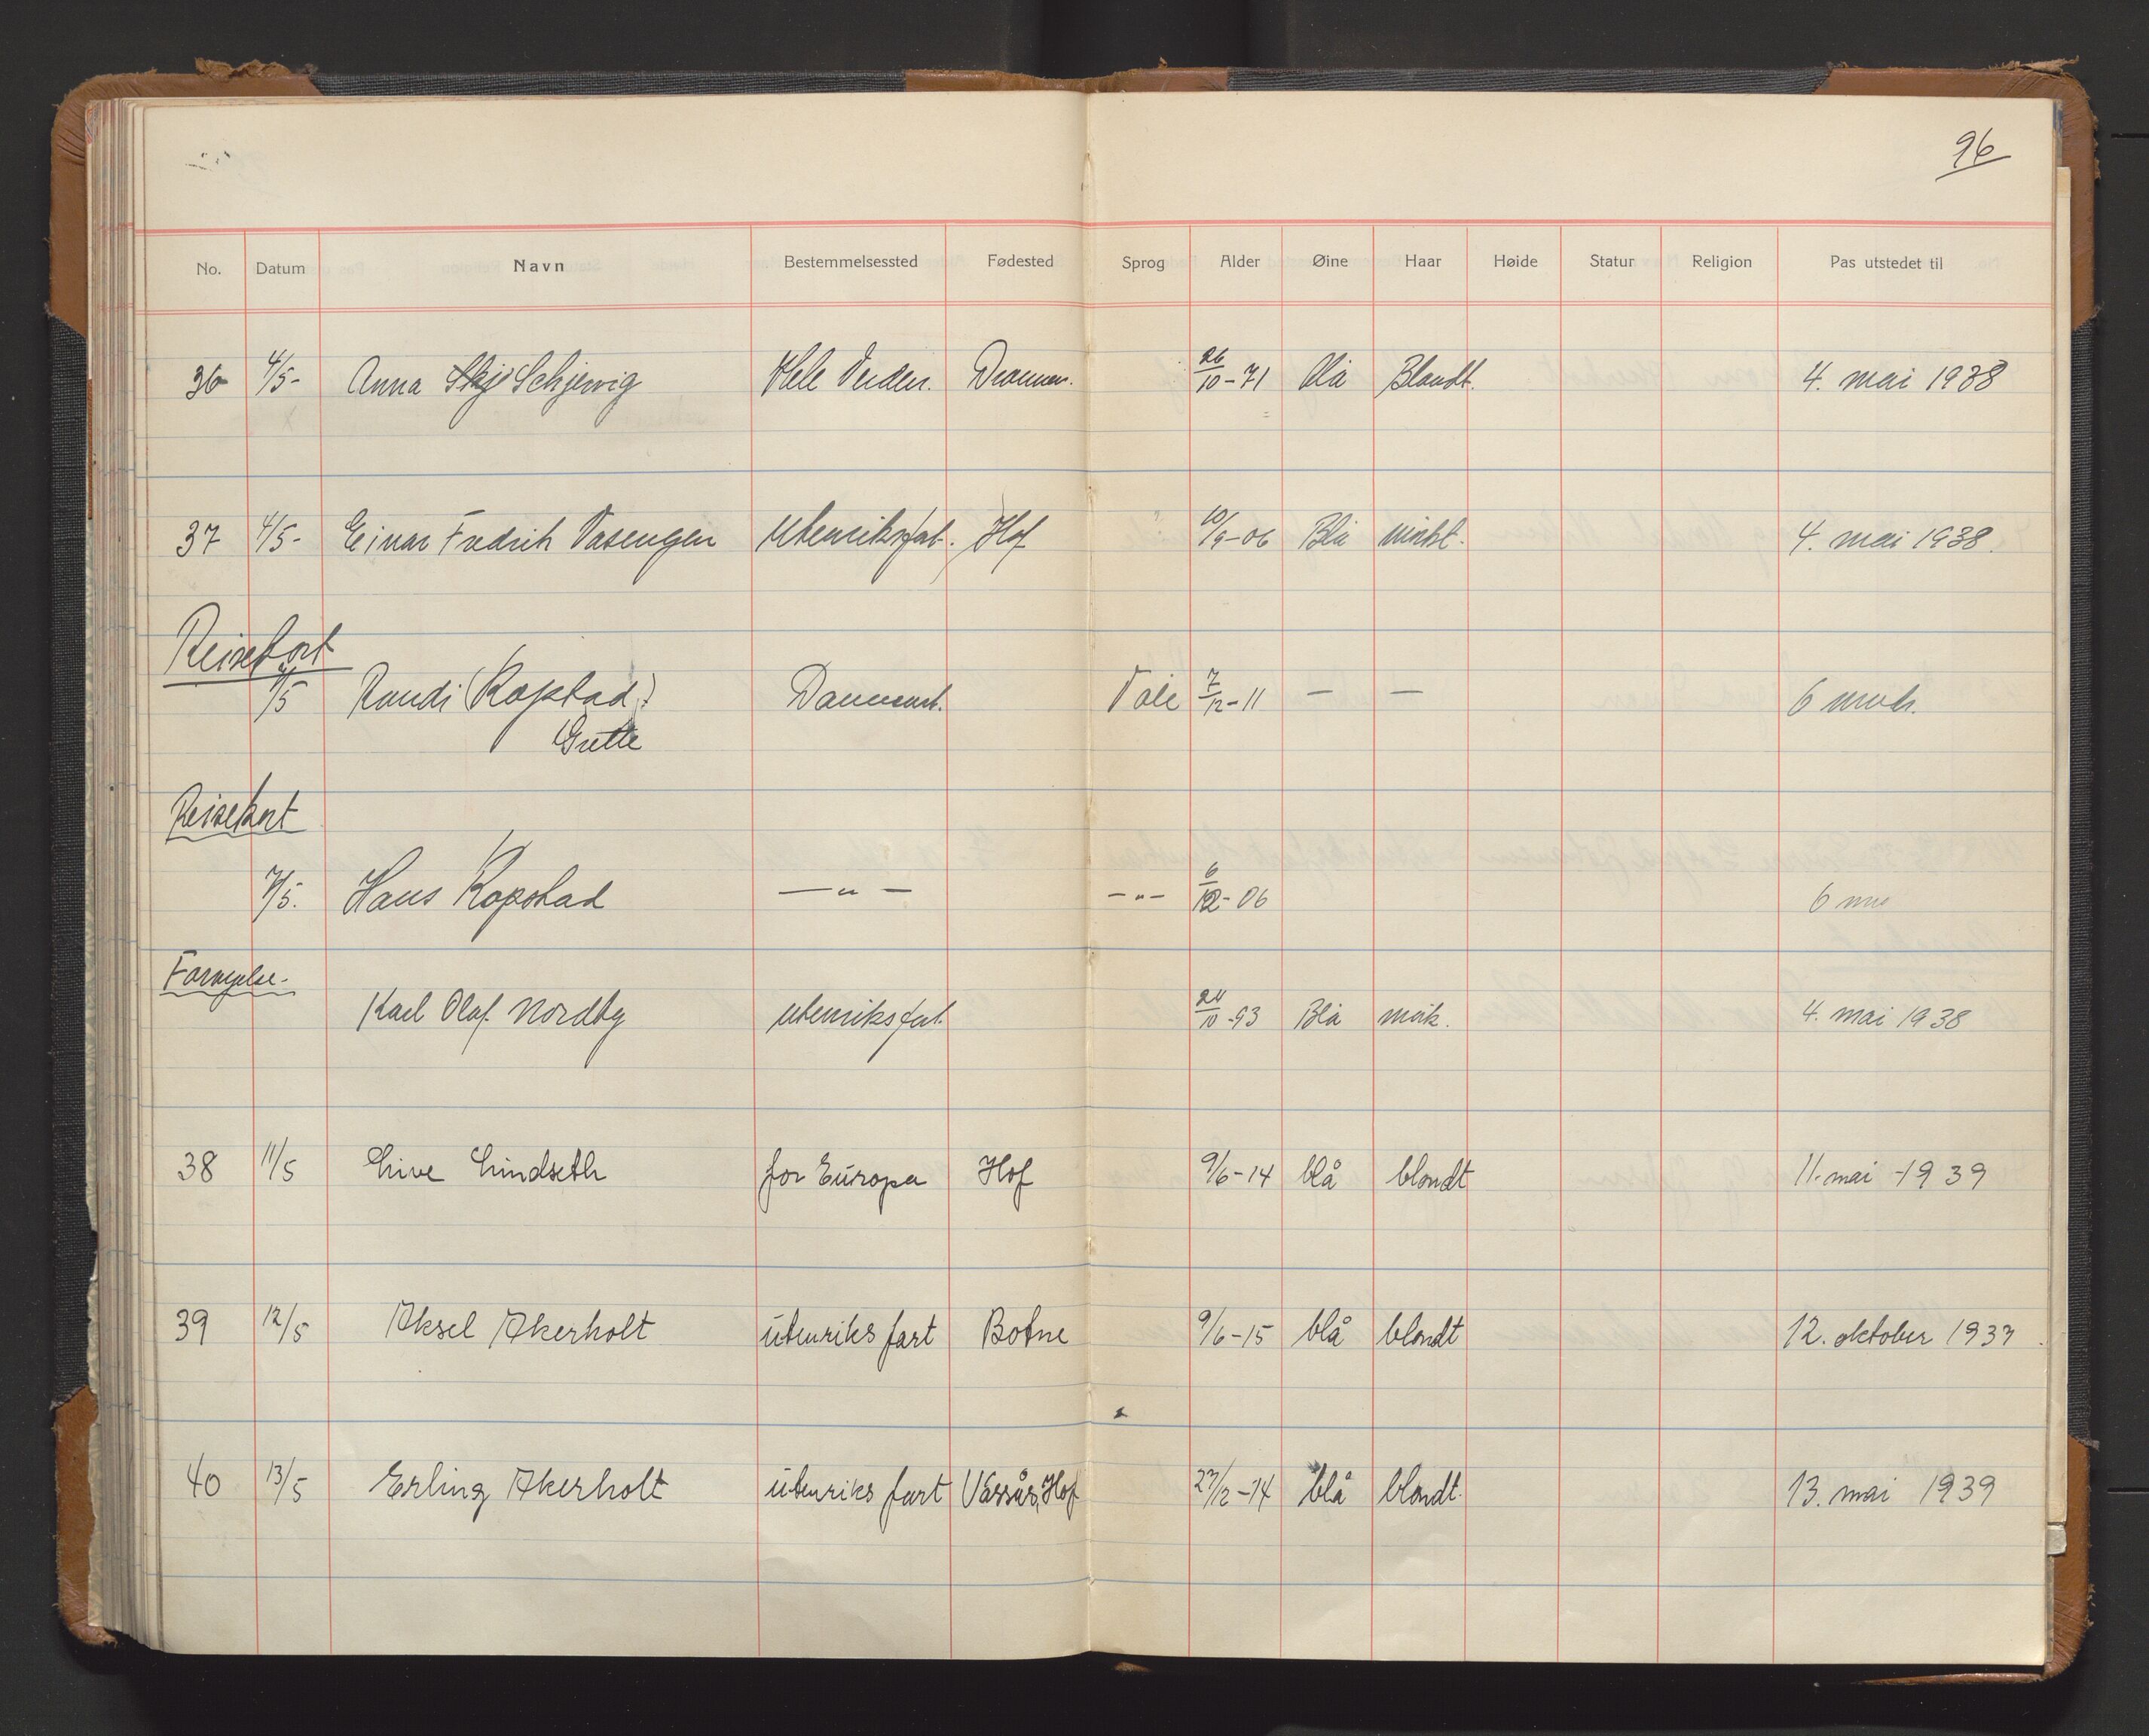 96
No. Datum Navn Bestemmelsessted Fødested Sprog Alder Øine Haar Høide Statur Religion Pas utstedet til
36 4/5- Anna Skj Schjervig Hele Verden. Drammen. 26/10-71 blå Blondt. 4. mai 1938
37 4/5- Einar Fredrik Vasengen Utenriksfart. Hof 10/9-06 Blå mørkt. 4. mai 1938.
Reisekort
7/5 Randi (Kopstad) Danmark. Våle 7/12-11 — — 6 mndr.
Grette
Reisekort
7/5. Hans Kopstad —"— -"- 6/12-06 6 mnd
Fornyelse.
Karl Olaf Nordby utenriksfart. 24/10-93 Blå mørk. 4. mai 1938
38 11/5 Live Lindseth for Europa Hof 9/6-14 blå blondt 11. mai 1939
39 12/5 Aksel Akerholt utenriks fart Botne 9/6-15 blå blondt 12. oktober 1937.
40 13/5 Erling Akerholt utenriks fart Vassås, Hof 27/12-14 blå blondt. 13. mai 1939